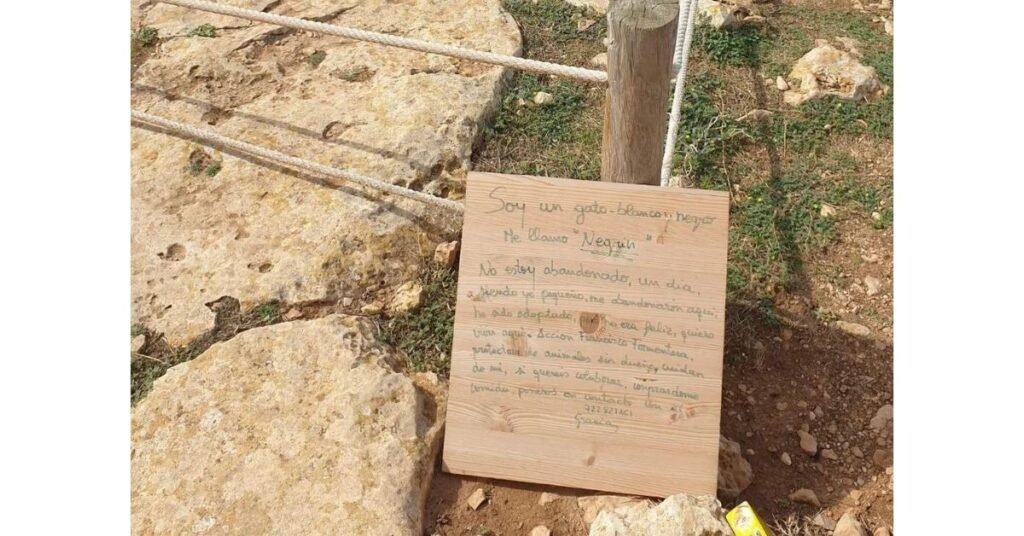 Soy un gato blanco y negro
Me llamo "Negrun"
No estoy abandonado, un dia,
siendo yo pequeño, me abandonaron aqui,
he sido adoptado, no era feliz, quiero
vivir aqui. Accion Francisco Formentera,
protectora de animales sin dueño, cuidan
de mi, si quereis colaborar, comprandome
comida, poneros en contacto con
722821161
Gracias